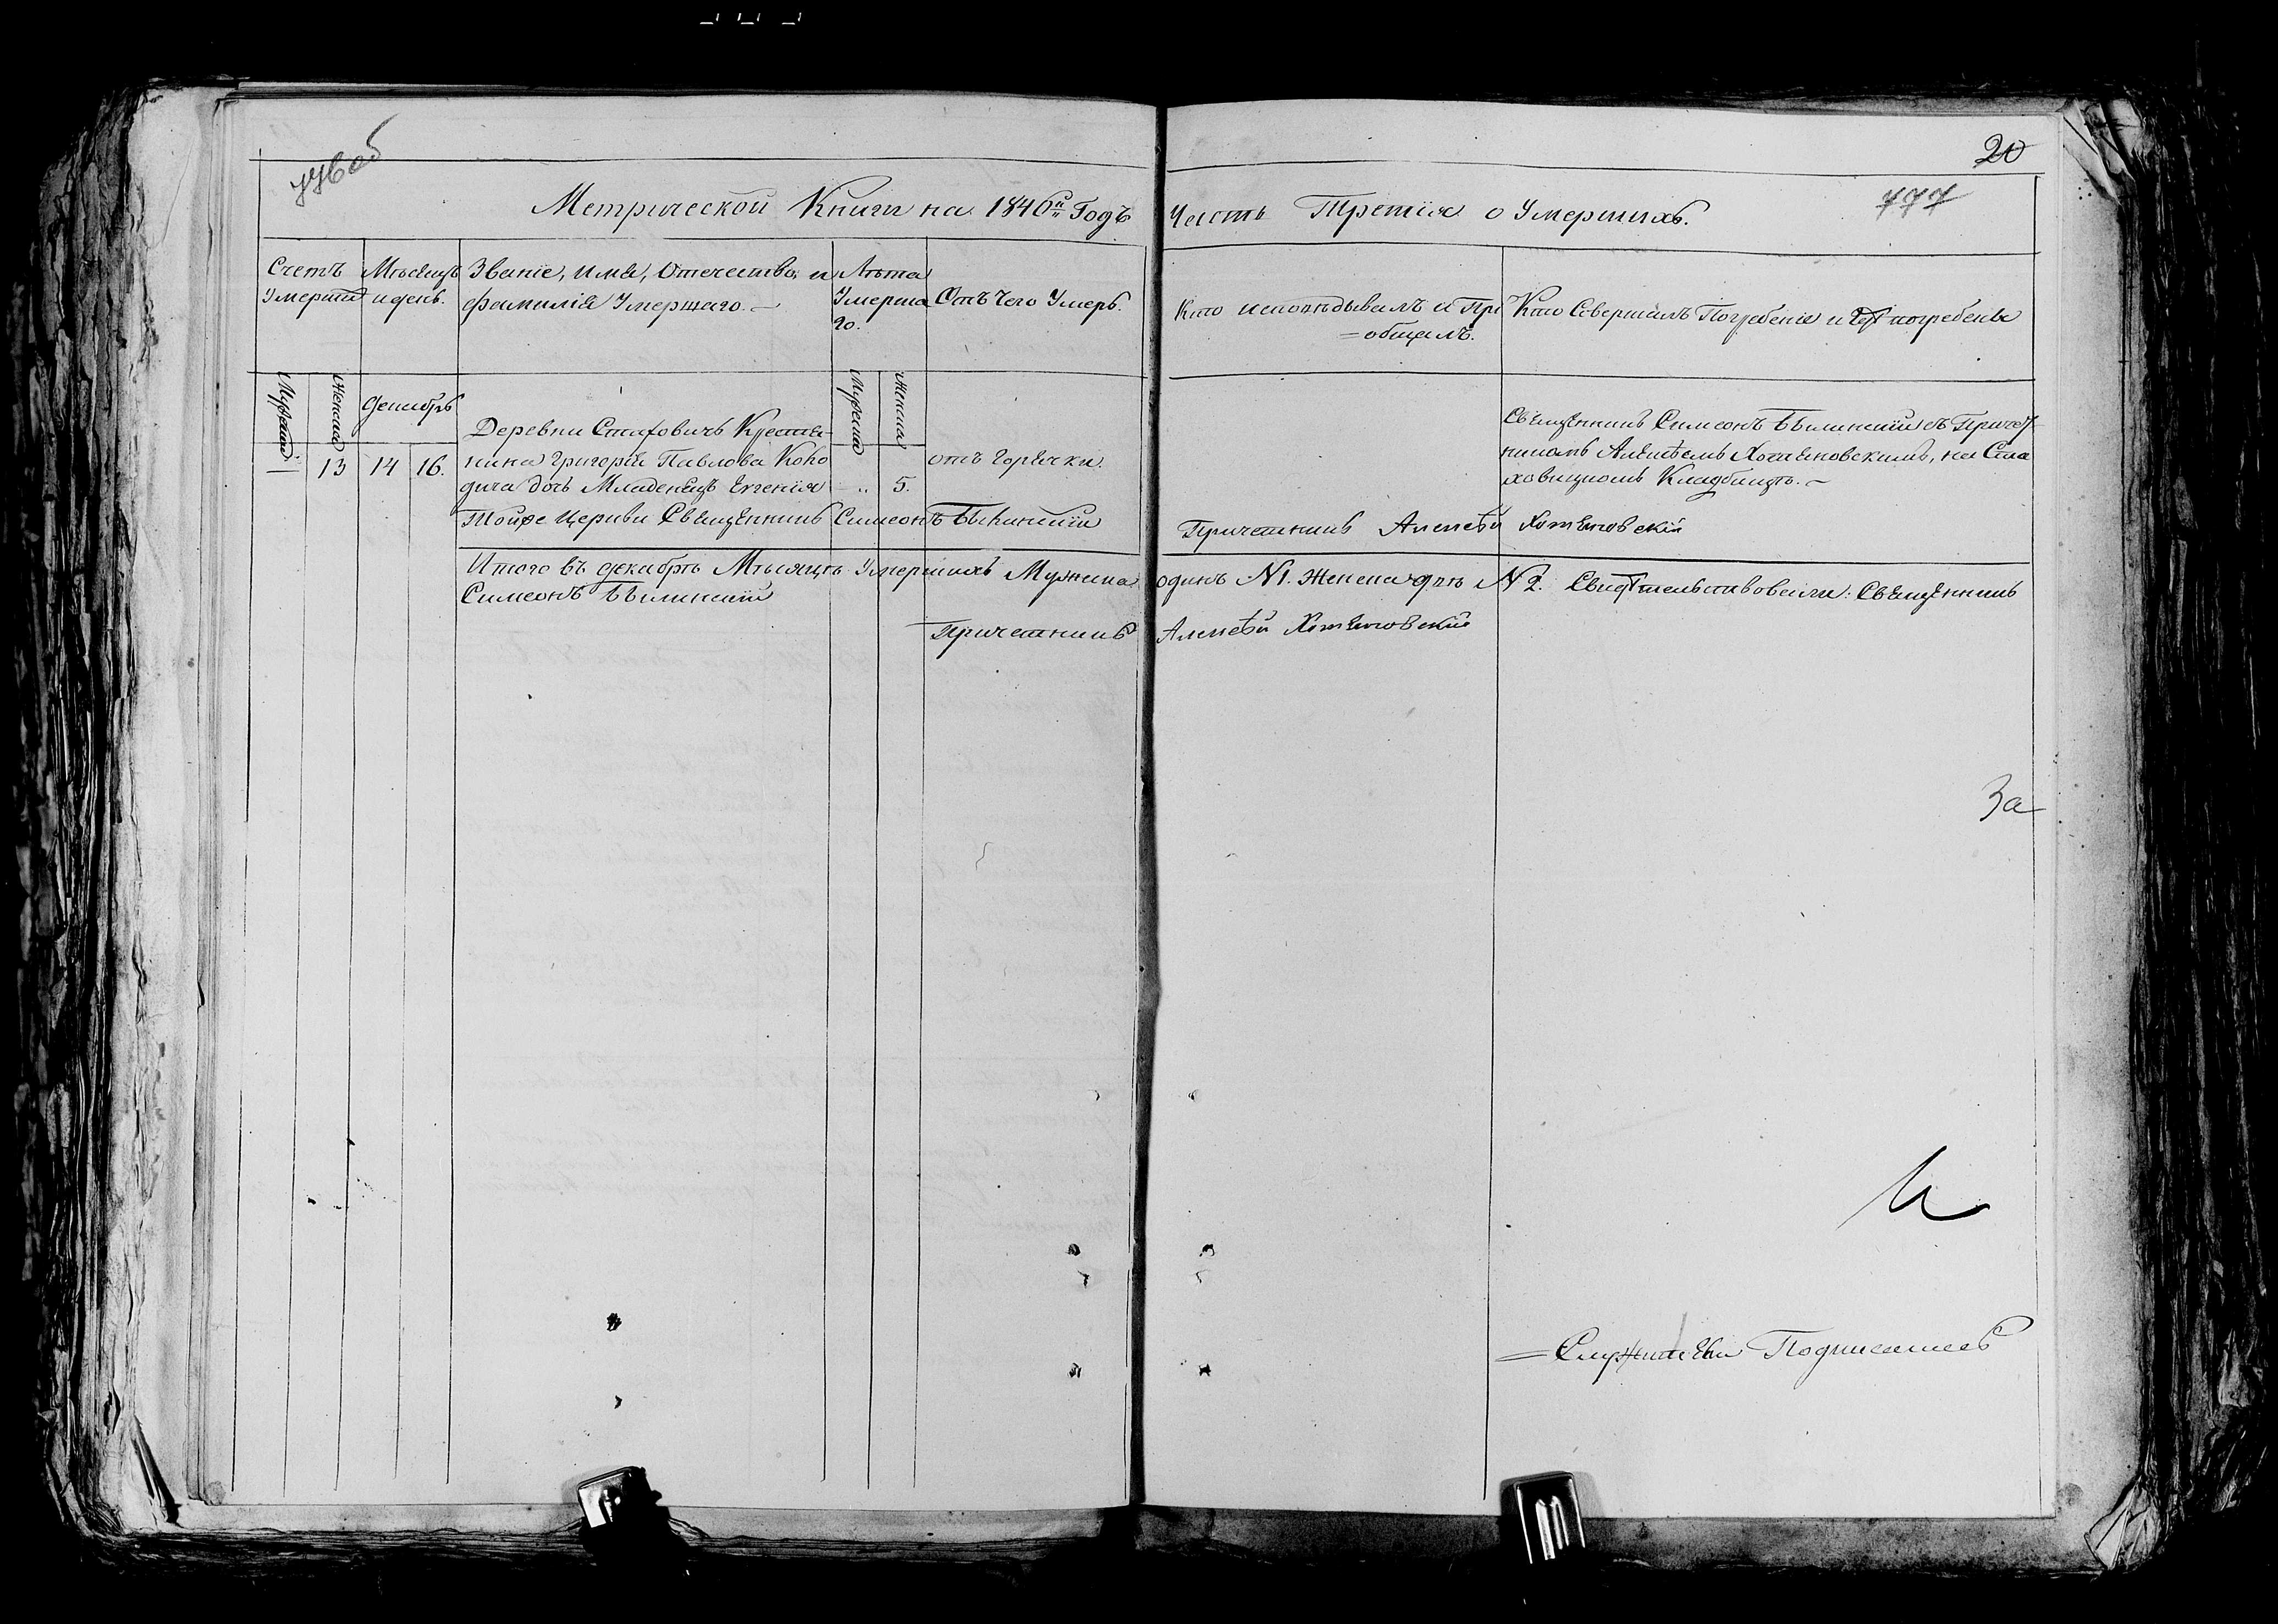 20
777
Метрической Книги на 1846й Годъ Часть Третія о Умершихъ.
Счетъ Умерши
Мѣсяцъ и день.
Званіе, имя, Отечество, и фамилія Умершаго. —
Лѣта Умерша го.
Отъ Чего Умеръ.
Кто исповѣдывалъ и При =общалъ.
Кто Совершалъ Погребеніе и Гдѣ погребены
Мужеска
Женска
Декабрь
Мужеска
Женска
— 13 14 16.
Деревни Стаховичъ Крестья-
нина Григорія Павлова Коко
дича дочь Младенецъ Евгенія
„ 5.
отъ Горячки.
Священникъ Симеонъ Бѣлинскій съ Причет
никомъ Алексѣемъ Хотяновскимъ, на Ста
ховицкомъ Кладбищѣ. —
Тойже Церкви Священникъ Симеонъ Бѣлинскій
Причетникъ Алексѣй Хотяновскій
Итого въ декабрѣ Мѣсяцѣ Умершихъ Мужска одинъ N1. Женска двѣ N2. Свидѣтельствовали: Священникъ
Симеонъ Бѣлинскій
Причетникъ Алексѣй Хотяновскій
За
=Служители Подписался